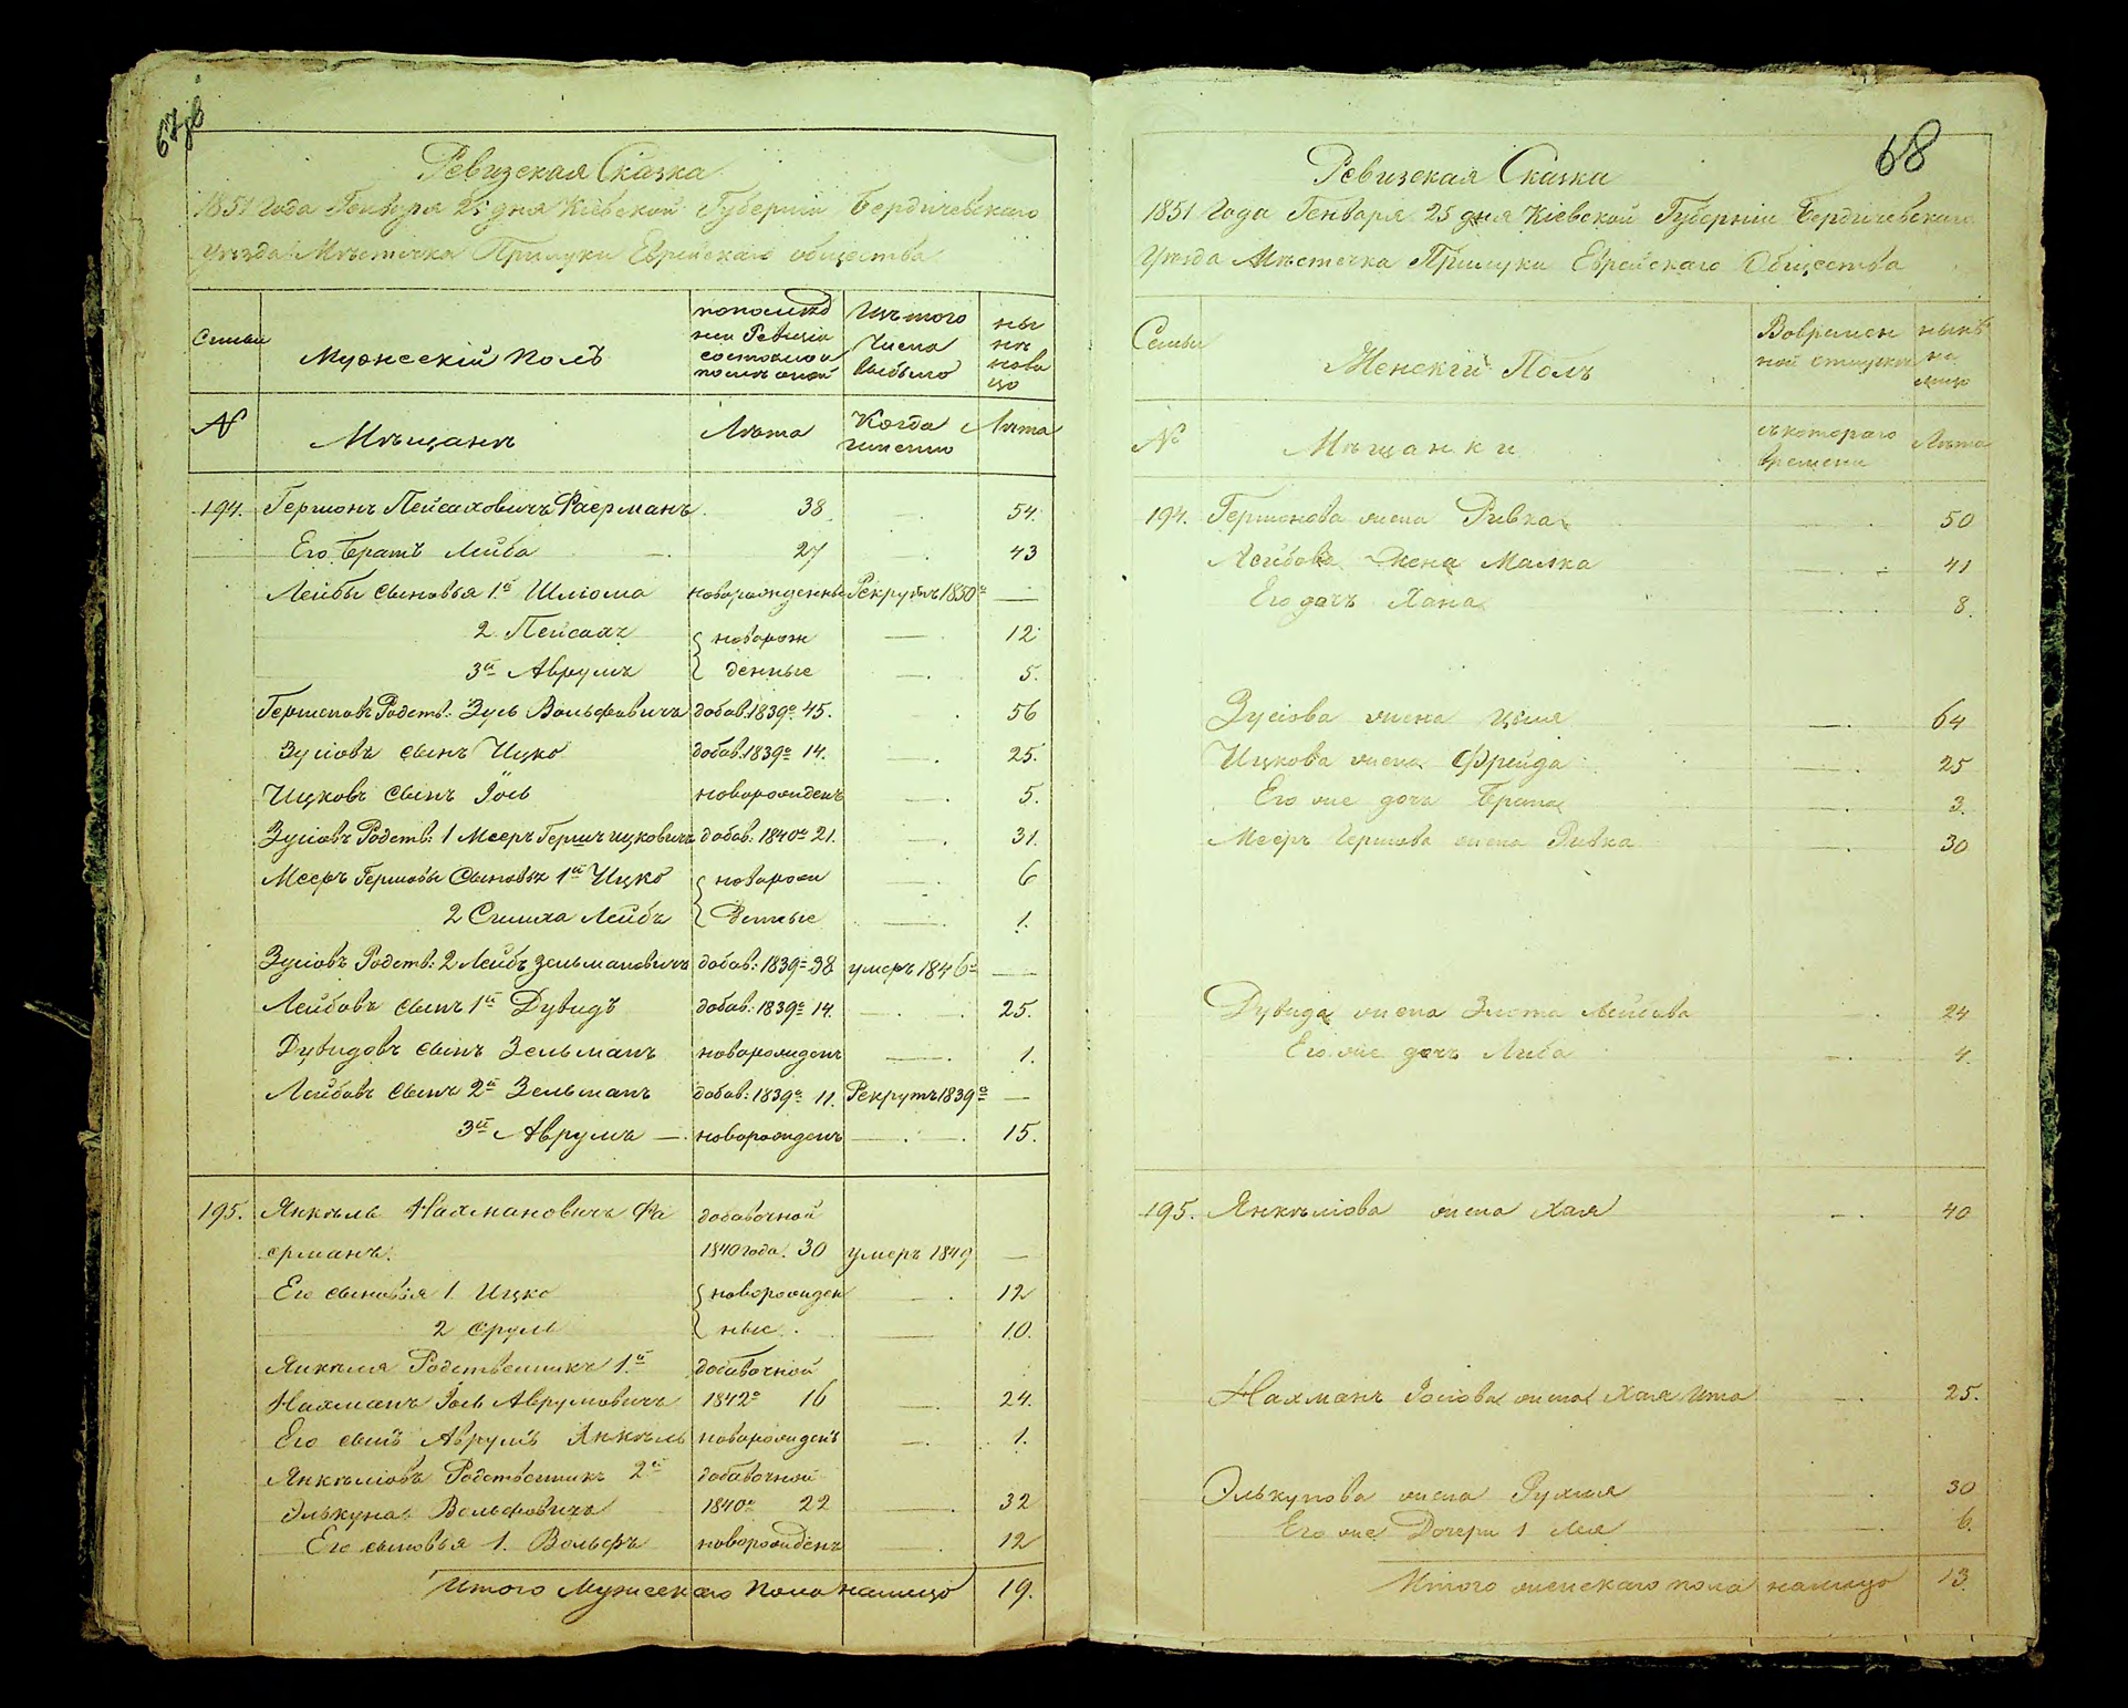 67об
Ревизская Сказка
1851 года Генваря 25 дня Кіевской Губерніи Бердичевскаго
уѣзда Мѣстечка Прилуки Еврейскаго общества
Семьи
Мужескій полъ
по послѣд
ней Ревизіи
состояло и
послѣ оной
Изъ того
числа
выбыло
ны
нѣ
нали
цо
№
Мѣщанъ
Лѣта
Когда
именно
Лѣта
194. Гершонъ Пейсаховичъ Фаерманъ 38 — 54.
Его братъ Лейба — 27 — 43
Лейбы сыновья 1й Шліома новорожденны Рекрутъ 1850го —
2 Пейсахъ новорож — 12
3й Аврумъ денные — 5.
Гершоновъ Родств: Зусь Вольфовичъ добав: 1839го 45. — 56
Зусіовъ сынъ Ицко добав: 1839го 14. — 25.
Ицковъ сынъ Іось новорожденъ — 5.
Зусіовъ Родств: 1 Мееръ Гершъ Ицковичъ добав: 1840го 21. — 31.
Мееръ Гершовы сыновья 1й Ицко новорож — 6
2 Симха Лейбъ денные — 1.
Зусіовъ Родств: 2 Лейбъ Зельмановичъ добав: 1839го 38 умеръ 1846го —
Лейбовъ сынъ 1й Дувидъ добав: 1839го 14. — 25.
Дувидовъ сынъ Зельманъ новорожденъ — 1.
Лейбовъ сынъ 2й Зельманъ добав: 1839го 11. Рекрутъ 1839го —
3й Аврумъ — новорожденъ — 15.
195. Янкѣль Нахмановичъ Фа добавочной
ерманъ. 1840 года. 30 умеръ 1849 —
Его сыновья 1. Ицко новорожден — 12
2 Сруль ные. — 10.
Янкѣля Родственникъ 1й добавочной
Нахманъ Іось Аврумовичъ 1842го 16 — 24.
Его сынъ Аврумъ Янкѣль новорожденъ — 1.
Янкѣліовъ Родственникъ 2й добавочной
Элькуна Вольфовичъ 1840го 22 — 32
Его сыновья 1. Вольфъ новорожденъ — 12
Итого Мужескаго пола налицо 19.
68
Ревизская Сказка
1851 года Генваря 25 дня Кіевской Губерніи Бердичевскаго
Уѣзда Мѣстечка Прилуки Еврейскаго Общества
Семьи
Женскій Полъ
Вовремен
ной отлучки
нынѣ
на
лицо
№
Мѣщанки
съ котораго
времени
Лѣта
194. Гершонова жена Ривка — 50
Лейбова жена Малка — 41
Его дочь Хана — 8.
Зусіова жена Цыля — 64
Ицкова жена Фрейда — 25
Его же дочь — 3.
Мееръ Гершова жена Ривка — 30
Дувида жена Злота Лейбова — 24
Его же дочь Либа — 4.
195. Янкѣліова жена Хая — 40
Нахманъ Іосіова жена Хая Ита — 25.
Элькунова жена Рухля — 30
Его же Дочери 1 Лея — 6.
Итого женскаго пола налицо 13.